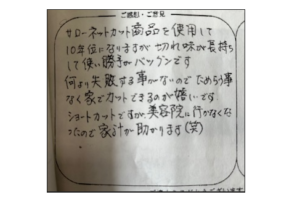 ご感想・ご意見
サローネットカット商品を使用して
10年位になりますが切れ味が長持ち
して使い勝手がバツグンです
何より失敗する事がないのでためらう事
なく家でカットできるのが嬉いです
ショートカットですが、美容院に行かなくな
ったので家計が助かります(笑)